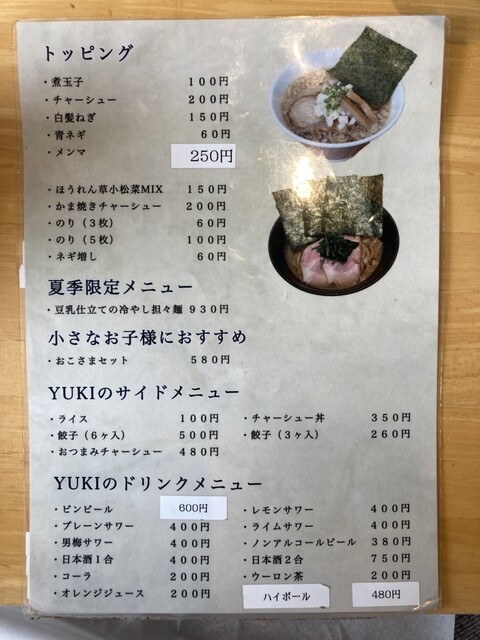 トッピング
・煮玉子 100円
・チャーシュー 200円
・白髪ねぎ 150円
・青ネギ 60円
・メンマ 250円
・ほうれん草小松菜MIX 150円
・かま焼きチャーシュー 200円
・のり（3枚） 60円
・のり（5枚） 100円
・ネギ増し 60円
夏季限定メニュー
・豆乳仕立ての冷やし担々麺 930円
小さなお子様におすすめ
・おこさまセット 580円
YUKIのサイドメニュー
・ライス 100円 ・チャーシュー丼 350円
・餃子（6ヶ入） 500円 ・餃子（3ヶ入） 260円
・おつまみチャーシュー 480円
YUKIのドリンクメニュー
・ビンビール 600円 ・レモンサワー 400円
・プレーンサワー 400円 ・ライムサワー 400円
・男梅サワー 400円 ・ノンアルコールビール 380円
・日本酒1合 400円 ・日本酒2合 750円
・コーラ 200円 ・ウーロン茶 200円
・オレンジジュース 200円 ハイボール 480円